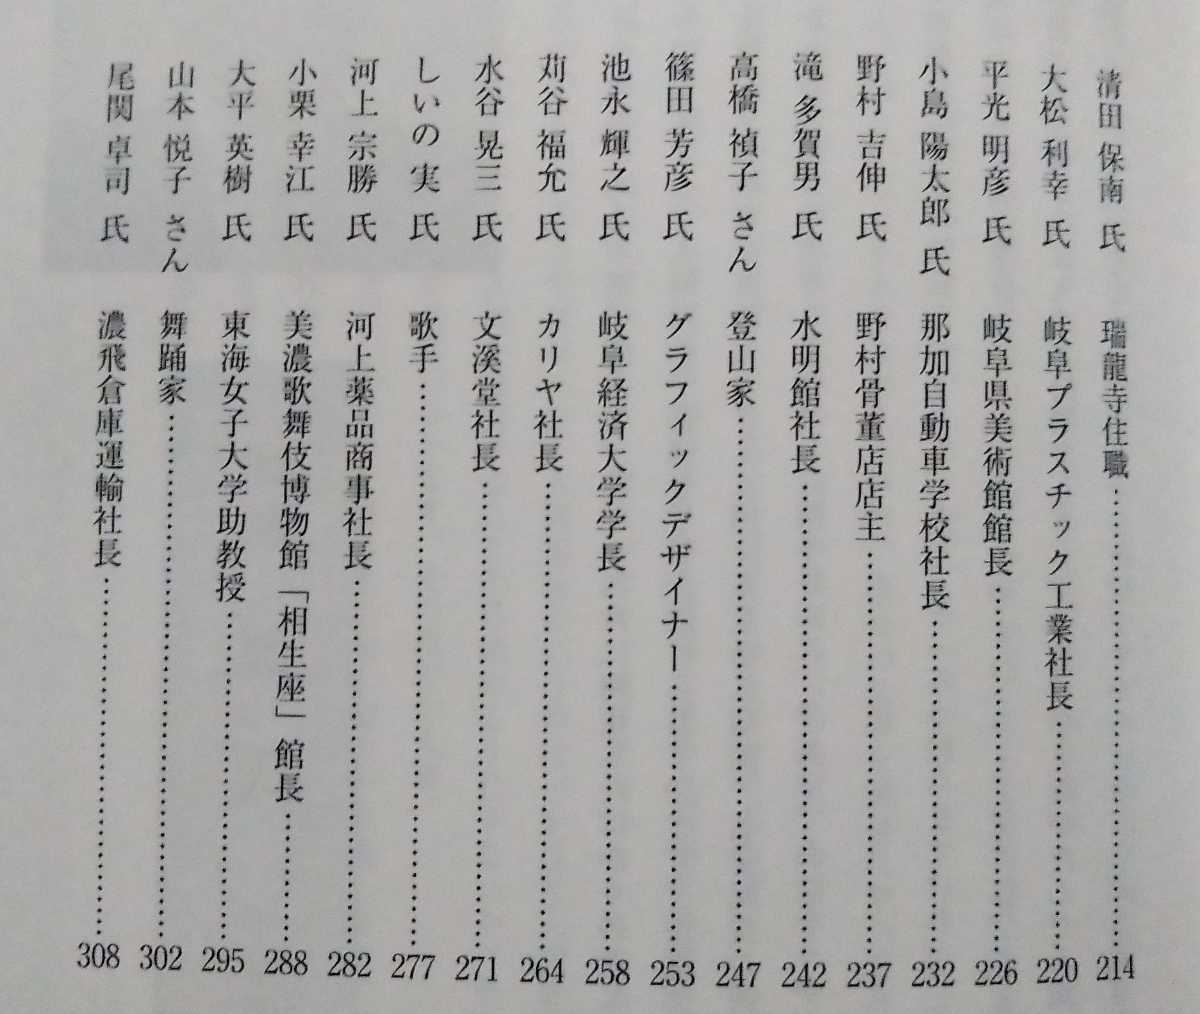 清田 保南 氏 瑞龍寺住職……………………………… 214
大松 利幸 氏 岐阜プラスチック工業社長……………… 220
平光 明彦 氏 岐阜県美術館館長………………………… 226
小島 陽太郎 氏 那加自動車学校社長…………………… 232
野村 吉伸 氏 野村骨董店店主…………………………… 237
滝 多賀男 氏 水明館社長………………………………… 242
高橋 禎子 さん 登山家…………………………………… 247
篠田 芳彦 氏 グラフィックデザイナー………………… 253
池永 輝之 氏 岐阜経済大学学長………………………… 258
苅谷 福允 氏 カリヤ社長………………………………… 264
水谷 晃三 氏 文溪堂社長………………………………… 271
しいの 実 氏 歌手………………………………………… 277
河上 宗勝 氏 河上薬品商事社長………………………… 282
小栗 幸江 氏 美濃歌舞伎博物館「相生座」館長……… 288
大平 英樹 氏 東海女子大学助教授……………………… 295
山本 悦子 さん 舞踊家…………………………………… 302
尾関 卓司 氏 濃飛倉庫運輸社長………………………… 308